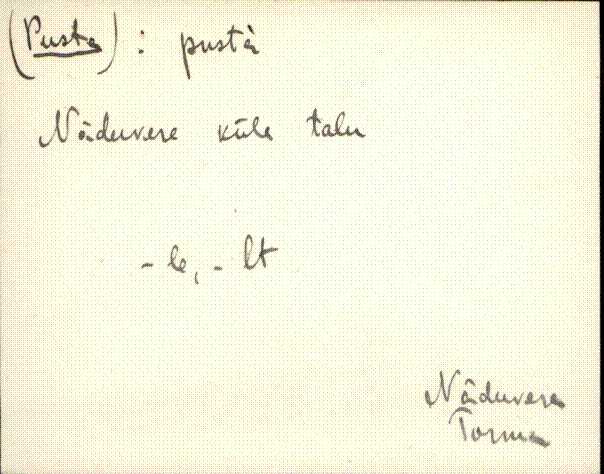 (Pusta) : pustà
Nãduvere küla talu
-le, -lt
Nãduvere
Torma